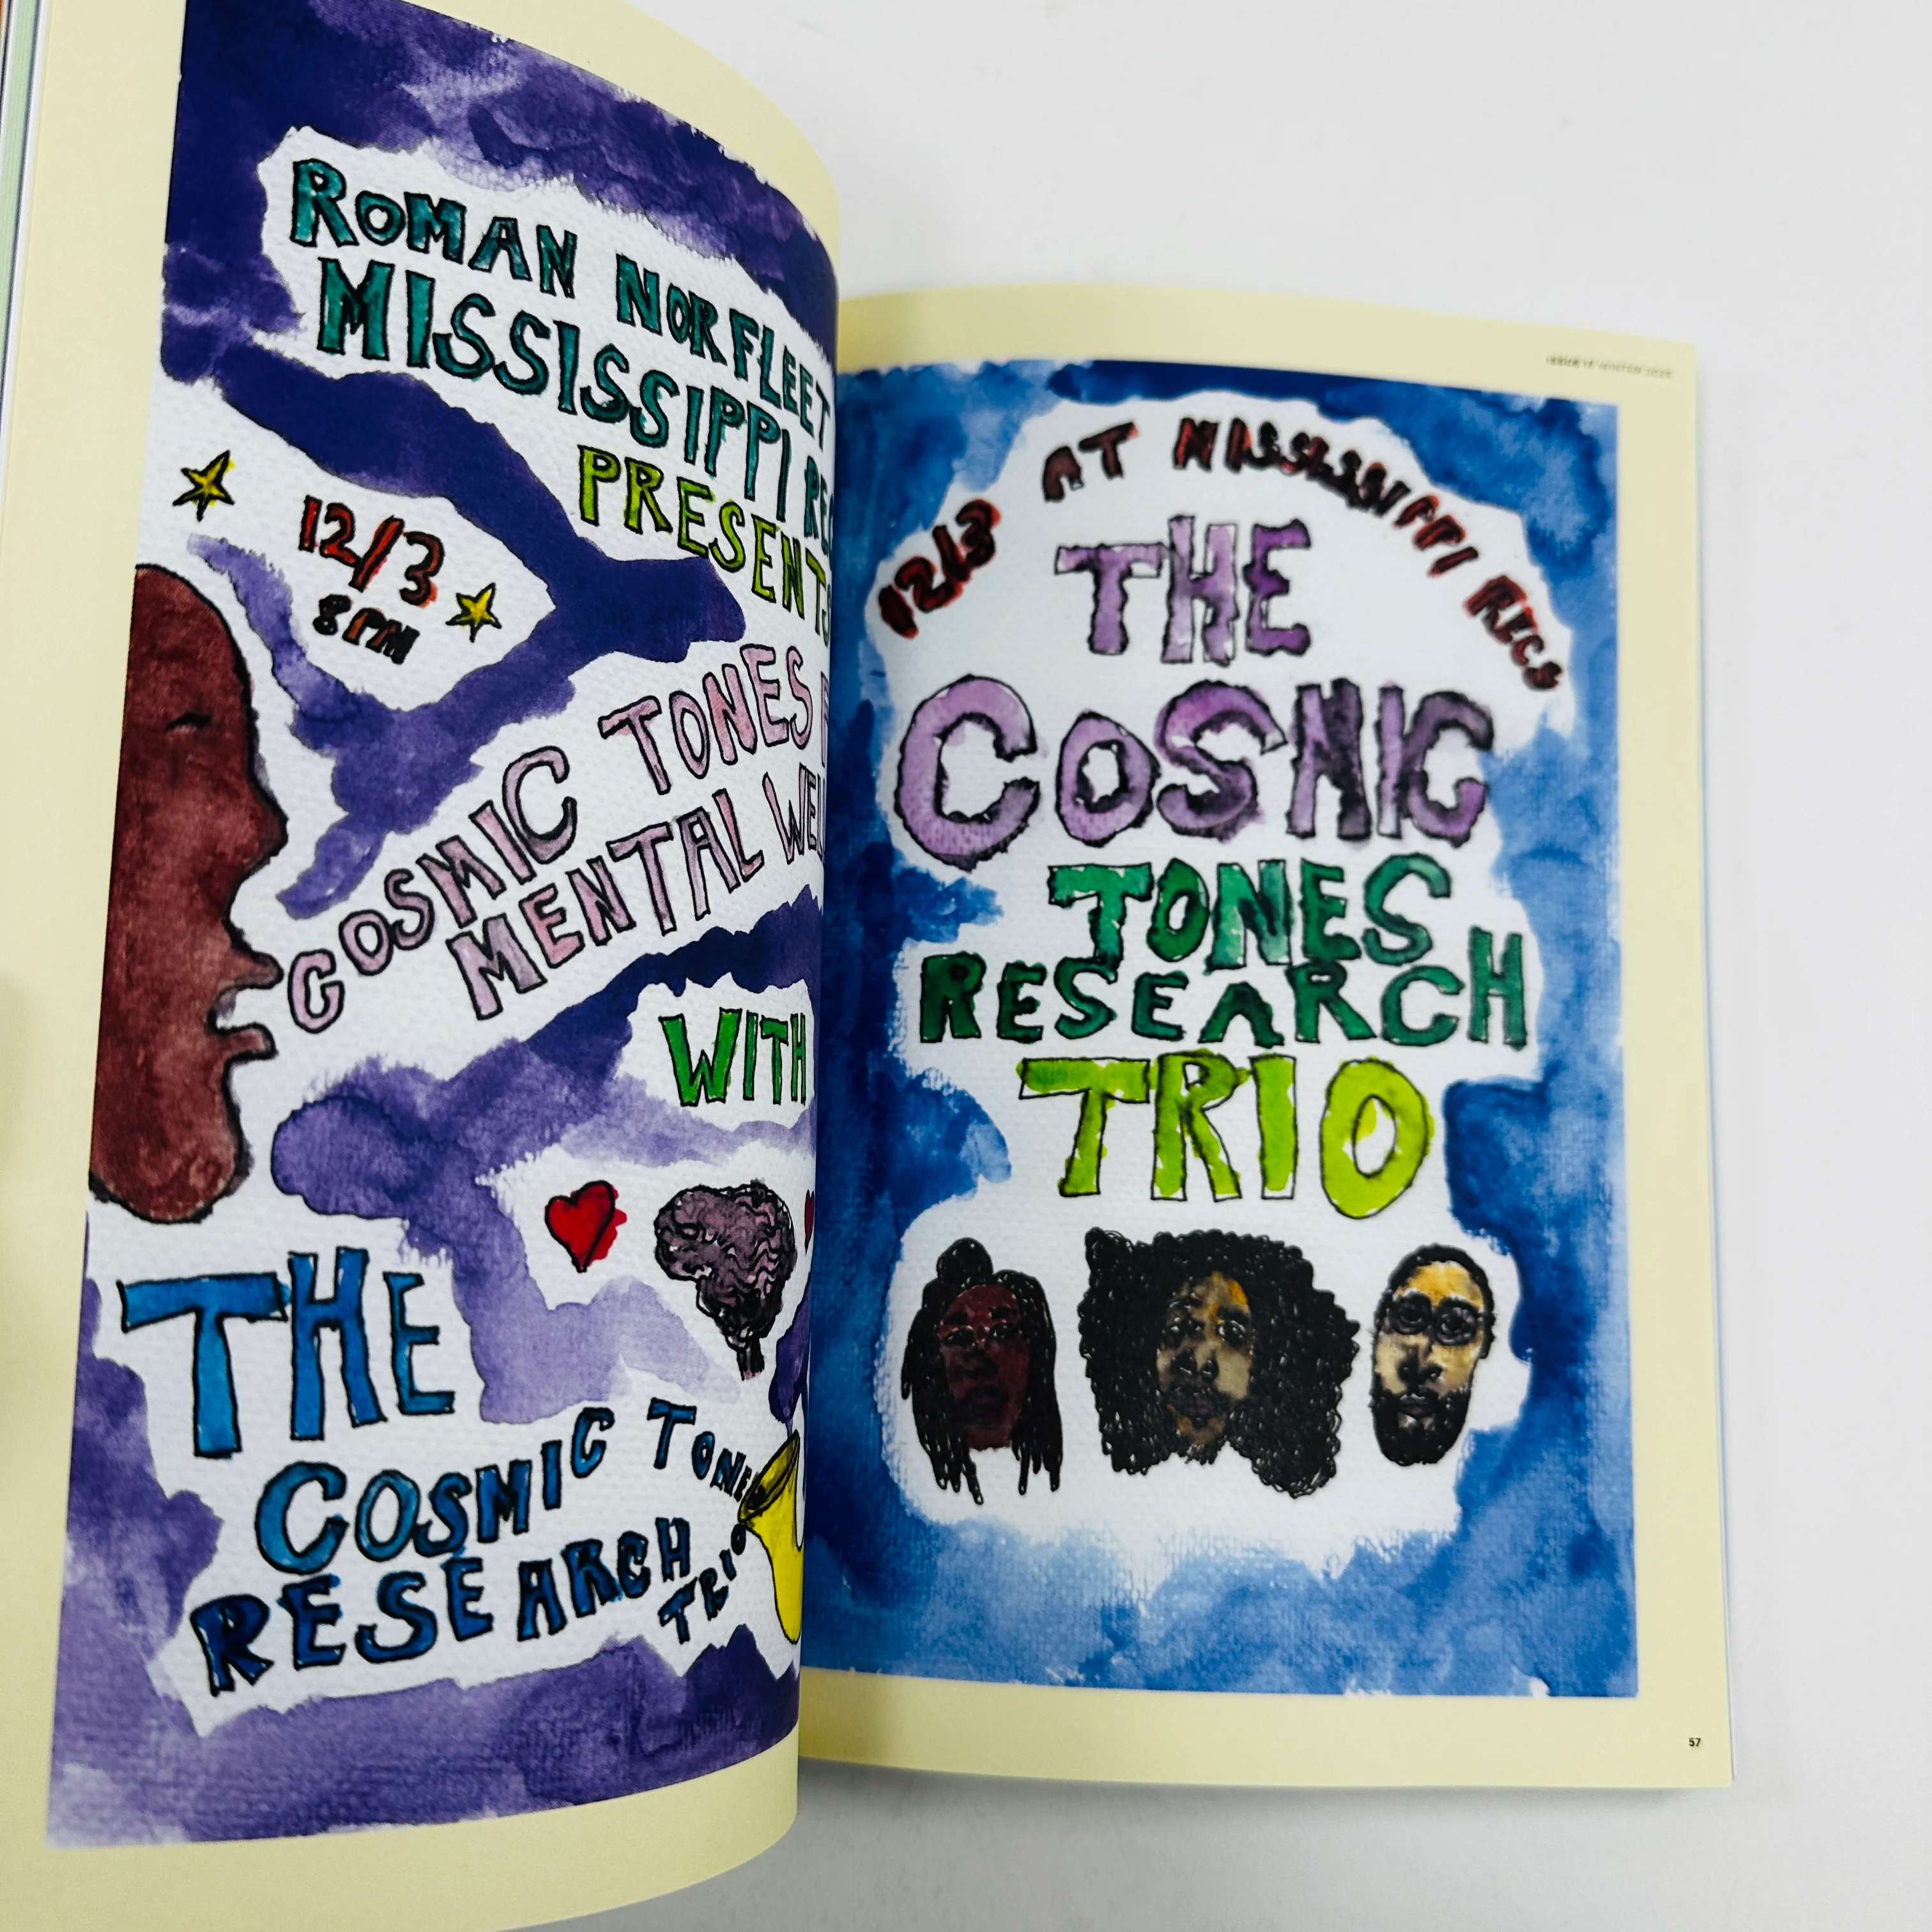 ROMAN NORFLEET
MISSISSIPPI REC
PRESENTS
12/3
8PM
COSMIC TONES F
MENTAL WEL
WITH
THE
COSMIC TONE
RESEARCH
TRIO
ISSUE 17 WINTER 2025
12/3 AT MISSISSIPPI RECS
THE
COSMIC
TONES
RESEARCH
TRIO
57